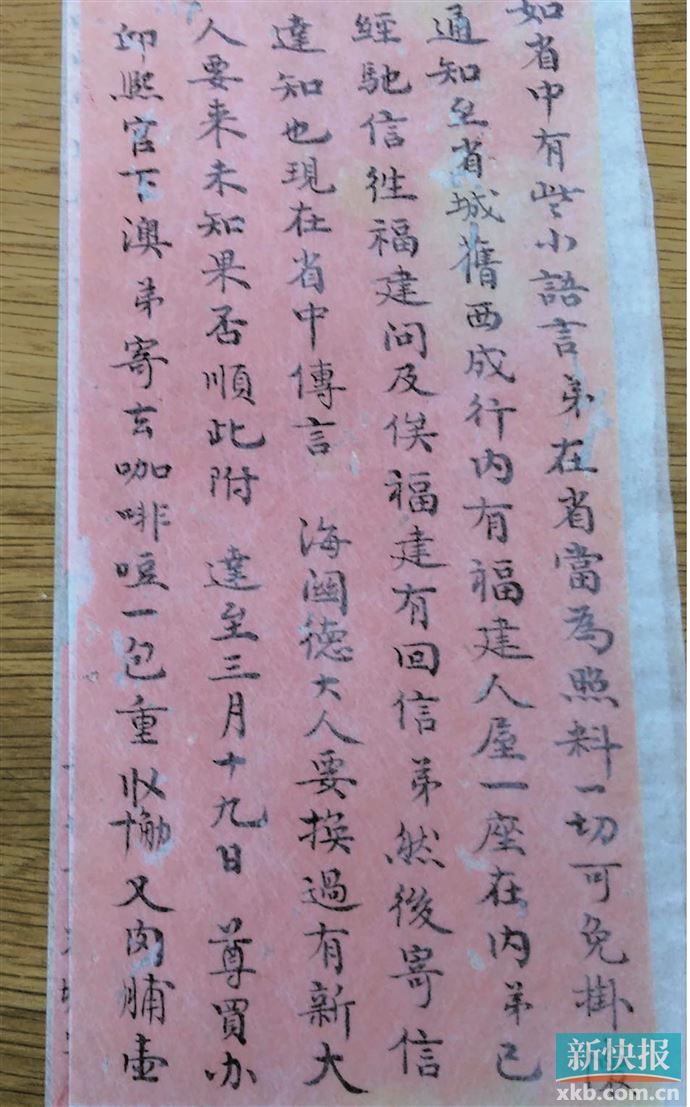 如省中有些小語言弟在省當為照料一切可免掛
通知至省城舊西成行内有福建人屋一座在内弟已
經馳信徃福建问及俟福建有回信弟然後寄信
達知也現在省中傳言 海関德大人要换過有新大
人要来未知果否順此附 達至三月十九日 尊買办
邱熙官下澳弟寄去咖啡哣一包重 又肉脯壹
新快报
xkb.com.cn